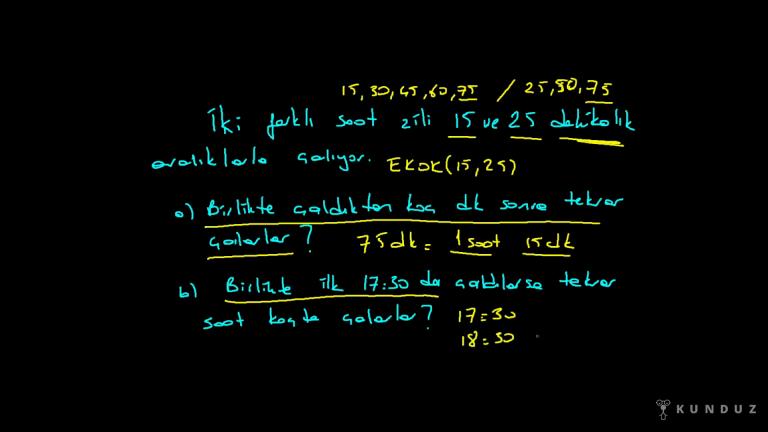 15, 30, 45, 60, 75 / 25, 50, 75
İki farklı saat zili 15 ve 25 dakikalık
aralıklarla çalıyor. EKOK(15,25)
a) Birlikte çaldıktan kaç dk sonra tekrar
çalarlar? 75 dk = 1 saat 15 dk
b) Birlikte ilk 17:30 da çaldılarsa tekrar
saat kaçta çalarlar? 17:30
18:30
KUNDUZ